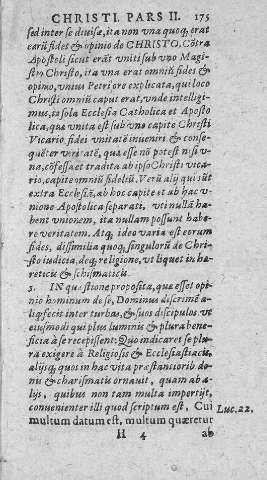 CHRISTI. PARS II. 175
sed inter se diuisæ, ita non vna quoq; erat
earũ fides & opinio de CHRISTO. Cõtra
Apostoli sicut erāt vniti sub vno Magi-
stro Christo, ita vna erat omniũ fides &
opinio, vnius Petri ore explicata, qui loco
Christi omniũ caput erat, vnde intelligi-
mus, in sola Ecclesia Catholica et Aposto
lica, quæ vnita est sub vno capite Christi
Vicario, fidei vnitatẽ inueniri & conse-
quẽter veritatẽ, quæ esse nõ potest nisi v-
na, cõfessa et tradita ab ipso Christi vica-
rio, capite omniũ fideliũ. Verũ alij qui sũt
extra Ecclesiã, ab hoc capite et ab hac v-
nione Apostolica separati, vti nullã ha-
bent vnionem, ita nullam possunt habe-
re veritatem. Atq; ideo varia est eorum
fides, dissimilia quoq; singulorũ de Chri-
sto iudicia, deq; religione, vt liquet in hæ-
reticis & schismaticis.
3. IN quæstione proposita, quæ esset opi
nio hominum de se, Dominus discrimẽ a-
liq; fecit inter turbas, & suos discipulos vt
eiusmodi qui plus luminis & plura bene-
ficia à se recepissent: Quo indicaret se plu
ra exigere à Religiosis & Ecclesiasticis,
alijsq; quos in hac vita præstantiorib do-
nis & charismatis ornauit, quam ab a-
lijs, quibus non tam multa impertijt,
conuenienter illi quod scriptum est, Cui
Luc. 22.
multum datum est, multum quæretur
H 4 ab